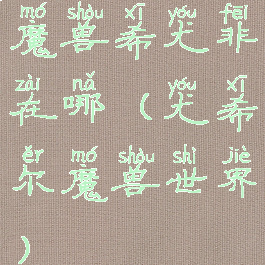 mó shòu xī yóu fēi
魔兽希尤非
zài nǎ yóu xī
在哪(尤希
ěr mó shòu shì jiè
尔魔兽世界
)